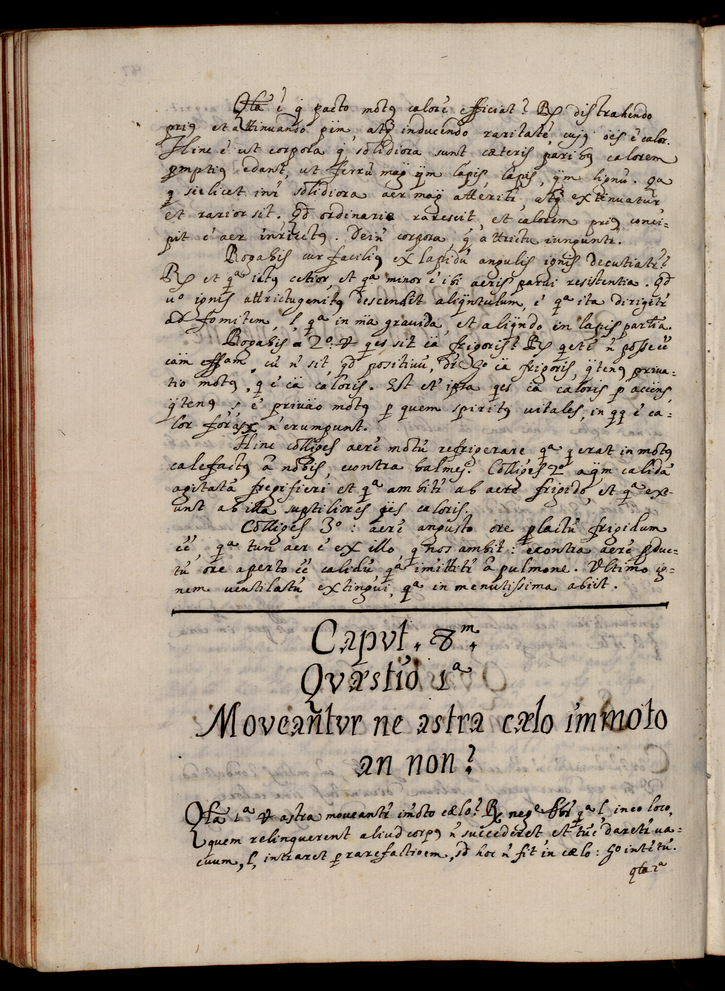 Qta é q pacto motꝯ calorē efficiat? R distrahendo
priꝯ et attinuando pm̄, atꝗ inducendo raritatē cujꝯ oēs é calor.
Hinc é ut corpora q̄ solidiora sunt cæteris paribꝯ calorem
promptiꝯ edant, ut ferrū magꝫ qm̄ lapis lapis, qm̄ lignū. qa
q̄ scilicet inr̄ solidiora aer magꝫ atteritr, atꝗ extinuatur
et rarior sit. Qd ordinarie rarescit, et calorem priꝯ conci=
pit é aer inr̄iectꝯ. Dein̄ corpora q̄ attritu iunguntr.
Rogabis cur faciliꝯ ex lapidū angulis ignis decutiatr?
R et qa ictꝯ citior, et qa minor é ibi aeris parui resistentia. Qd
uo ignis attritugenitꝯ descendit aliqn̄tulum, é qa ita dirigitr
ad fomitem, l, qa in m̄a gravida, et aliqn̄do in lapis partia.
Rogabis 2o: V qes sit cā frigoris? R qetē n̄ posse éé
cām effam, cū n̄ sit qd positivū, Dr go cā frigoris, qtenꝯ priva=
tio motꝯ, q é cā caloris. Est et ipsa qes cā caloris p accns,
qtenꝯ, s, é privao motꝯ p quem spiritꝯ vitales, in qq é ca=
lor foras n̄ erumpunt.
Hinc colliges aerē motū refrigerare qa q erat in motꝯ
calefactꝯ a nobis, econtra balmes. Colliges 2o aqm calidā
agitatā frigifieri et qa ambitr ab aere frigido, et qa ex=
unt ab illa suptiliores qes caloris.
Colliges 3o: aerē angusto ore flactū frigidum
éé, qa tun aer é ex illo, q nos ambit: econtra aerē pduc=
tū ore aperto éé calidū qa imittitr a pulmone. Vltimo ig=
nem ventilatū extingui, qa in menutissima abist.
Capvt. 8m.
Qvæstio 1a
Moveañtvr ne astra cælo immoto
an non?
Qta 1a V astra moveantr imoto cælo? R nege qa l, in eo loco,
quem relinquerent aliud corpꝯ n̄ succederet et tūc daretr va=
cuum, l, intraret p rarefactioem, sd hoc n̄ fit in cælo: go intr̄ tū.
qta 2a